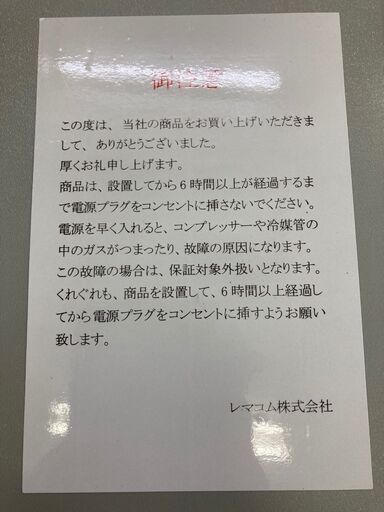 御注意
この度は、当社の商品をお買い上げいただきま
して、ありがとうございました。
厚くお礼申し上げます。
商品は、設置してから6時間以上が経過するま
で電源プラグをコンセントに挿さないでください。
電源を早く入れると、コンプレッサーや冷媒管の
中のガスがつまったり、故障の原因になります。
この故障の場合は、保証対象外扱いとなります。
くれぐれも、商品を設置して、6時間以上経過し
てから電源プラグをコンセントに挿すようお願い
致します。
レマコム株式会社